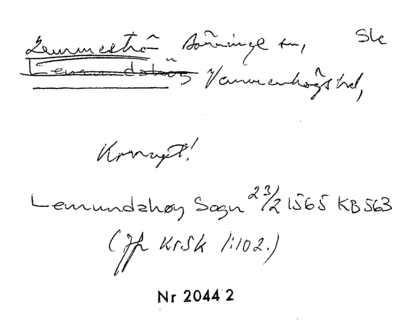 Lemmeströ Börringe sn, Sk
Lemundzhög Vemmenhögs hd,
Korrupt!
Lemundzhøy Sogn 23/2 1565 KB 563
(Jfr KrSk 1:102.)
Nr 2044 2